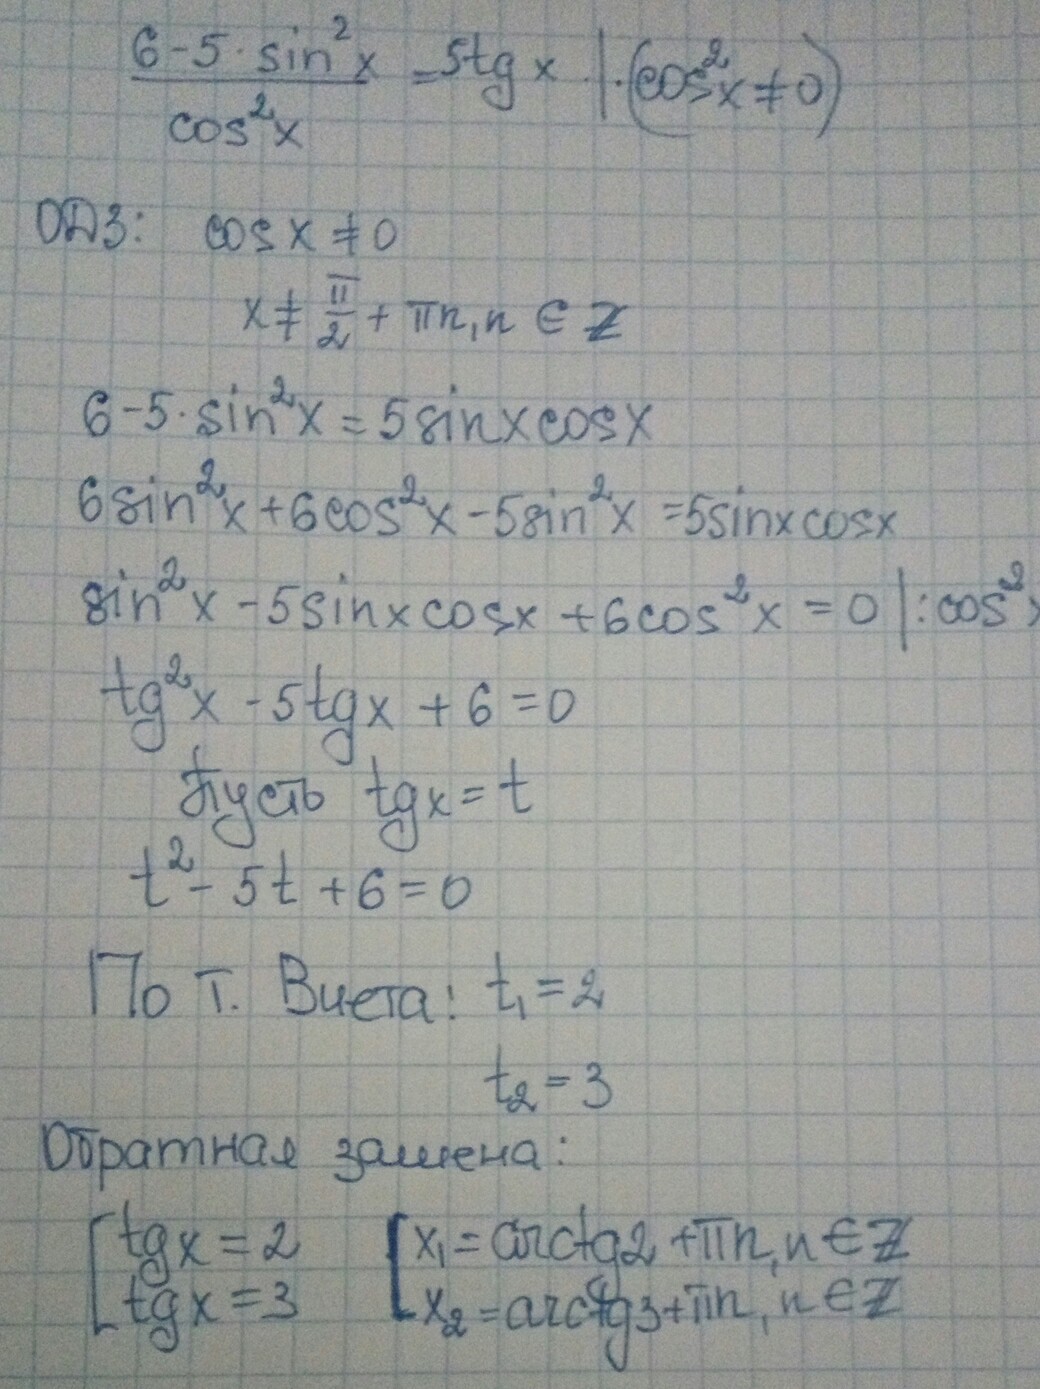 6-5·sin²x / cos²x = 5tgx |·(cos²x≠0)
ОДЗ: cosx≠0
x≠ π/2 + πn, n ∈ Z
6-5·sin²x = 5sinxcosx
6sin²x+6cos²x-5sin²x =5sinxcosx
sin²x -5sinxcosx +6cos²x = 0 |:cos²x
tg²x -5tgx +6=0
Пусть tgx=t
t²-5t+6=0
По т. Виета: t₁=2
t₂=3
Обратная замена:
[tgx=2 [x₁=arctg2+πn, n∈Z
[tgx=3 [x₂=arctg3+πn, n∈Z